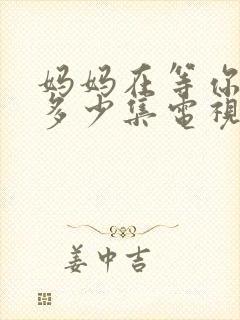 妈妈在等你
多少集電視
姜中吉